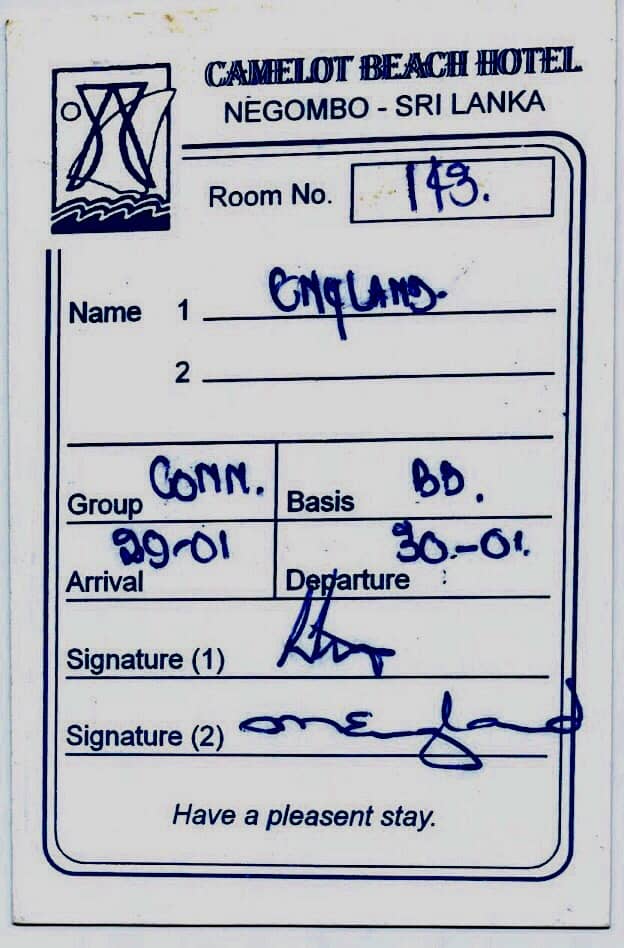 CAMELOT BEACH HOTEL
NEGOMBO - SRI LANKA
Room No. 143.
Name 1 ENGLAND.
2
Group COMM. Basis BB.
Arrival 29-01 Departure 30-01.
Signature (1)
Signature (2) England
Have a pleasent stay.